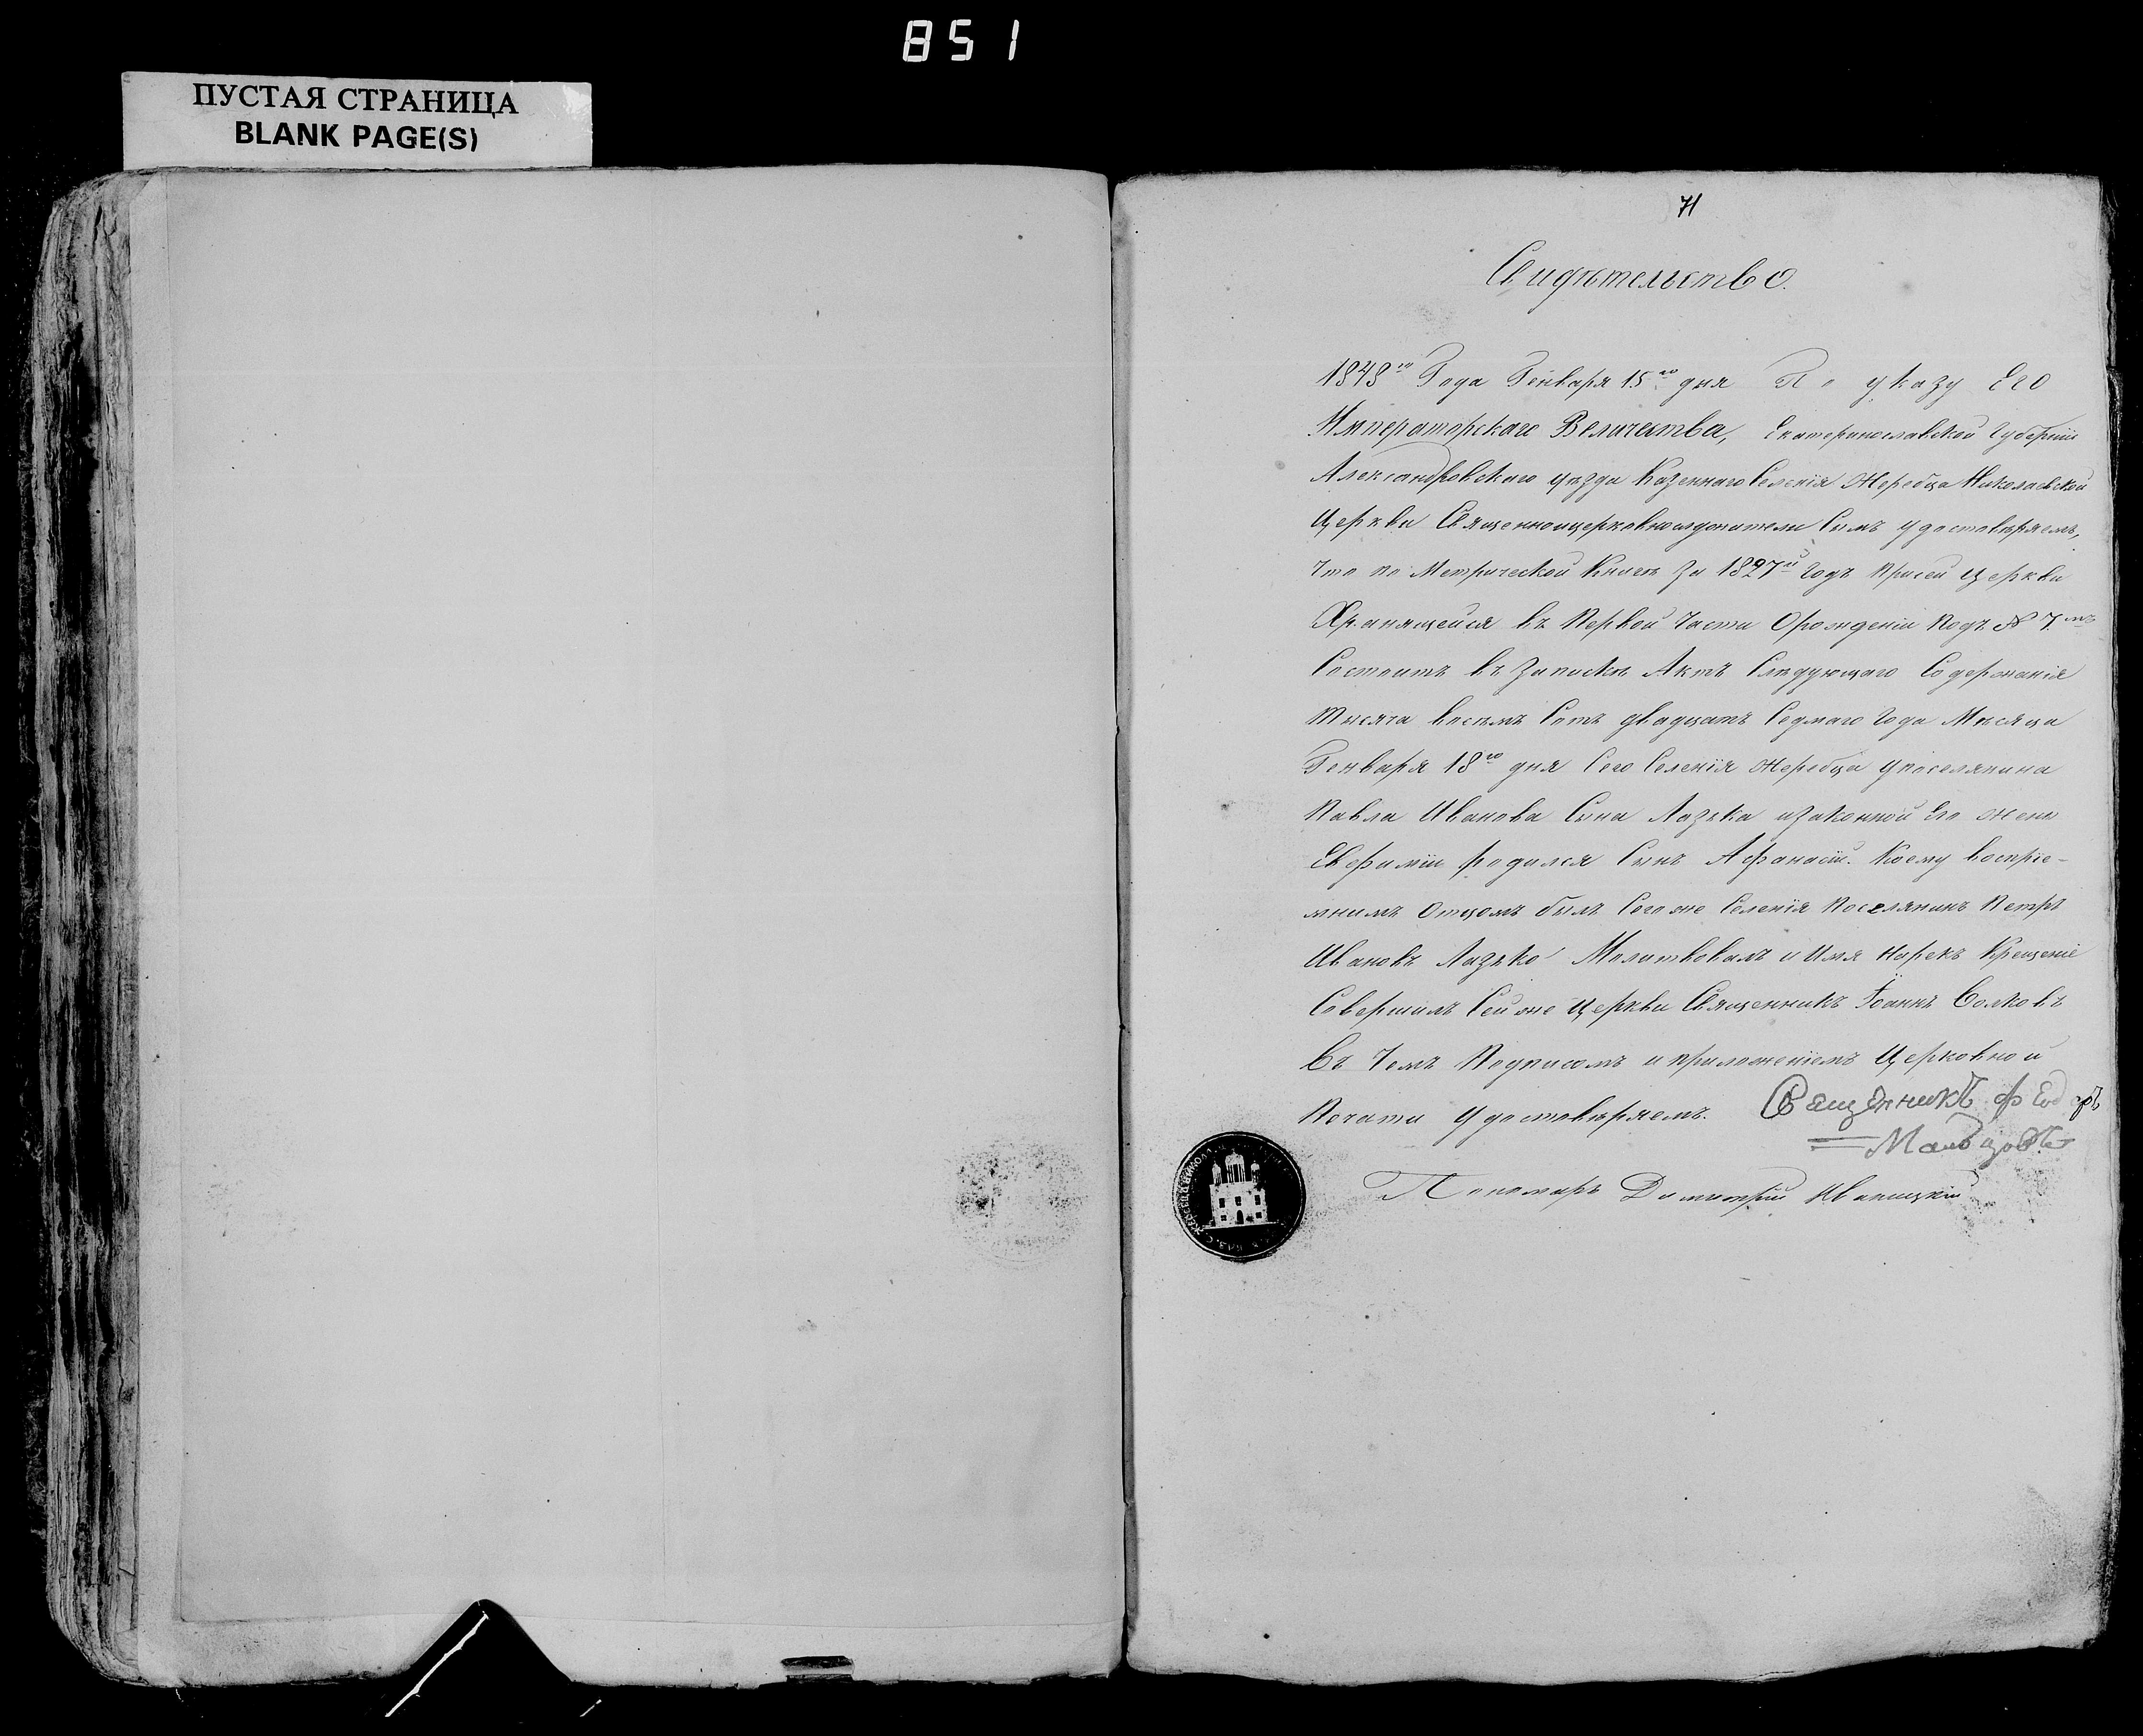 851
ПУСТАЯ СТРАНИЦА
BLANK PAGE(S)
71
Свидѣтельство.
1848го Года Генваря 15го дня По указу Его
Императорскаго Величества, Екатеринославской Губерніи
Александровскаго уѣзда Казеннаго Селенія Жеребца Николаевской
Церкви Священноицерковнослужители Симъ удостовѣряемъ,
что по Метрической Книгѣ За 1827й Годъ присей Церкви
Хранящейся въ Первой Части Орожденіи подъ № 7мъ
Состоитъ въ Запискѣ Актъ Слѣдующаго Содержанія
Тысяча восемъ Сотъ двадцать Седмаго Года Мѣсяца
Генваря 18го дня Сего Селенія Жеребца упоселянина
Павла Иванова Сына Лазъка изаконной Его жены
Евфиміи родился Сынъ Афанасій. Коему воспріе-
мнимъ Отцомъ былъ Сегоже Селенія Поселянинъ Петръ
Ивановъ Лазъко Молитвовалъ и Имя Нарекъ Крещеніе
Совершилъ Сейже Церкви Священникъ Іоаннъ Волковъ
Въ Чемъ Подписомъ иприложеніемъ Церковной
Печати Удостовѣряемъ. Священникъ Федоръ
Мальцовъ
Пономарь Димитрій Иваницкій